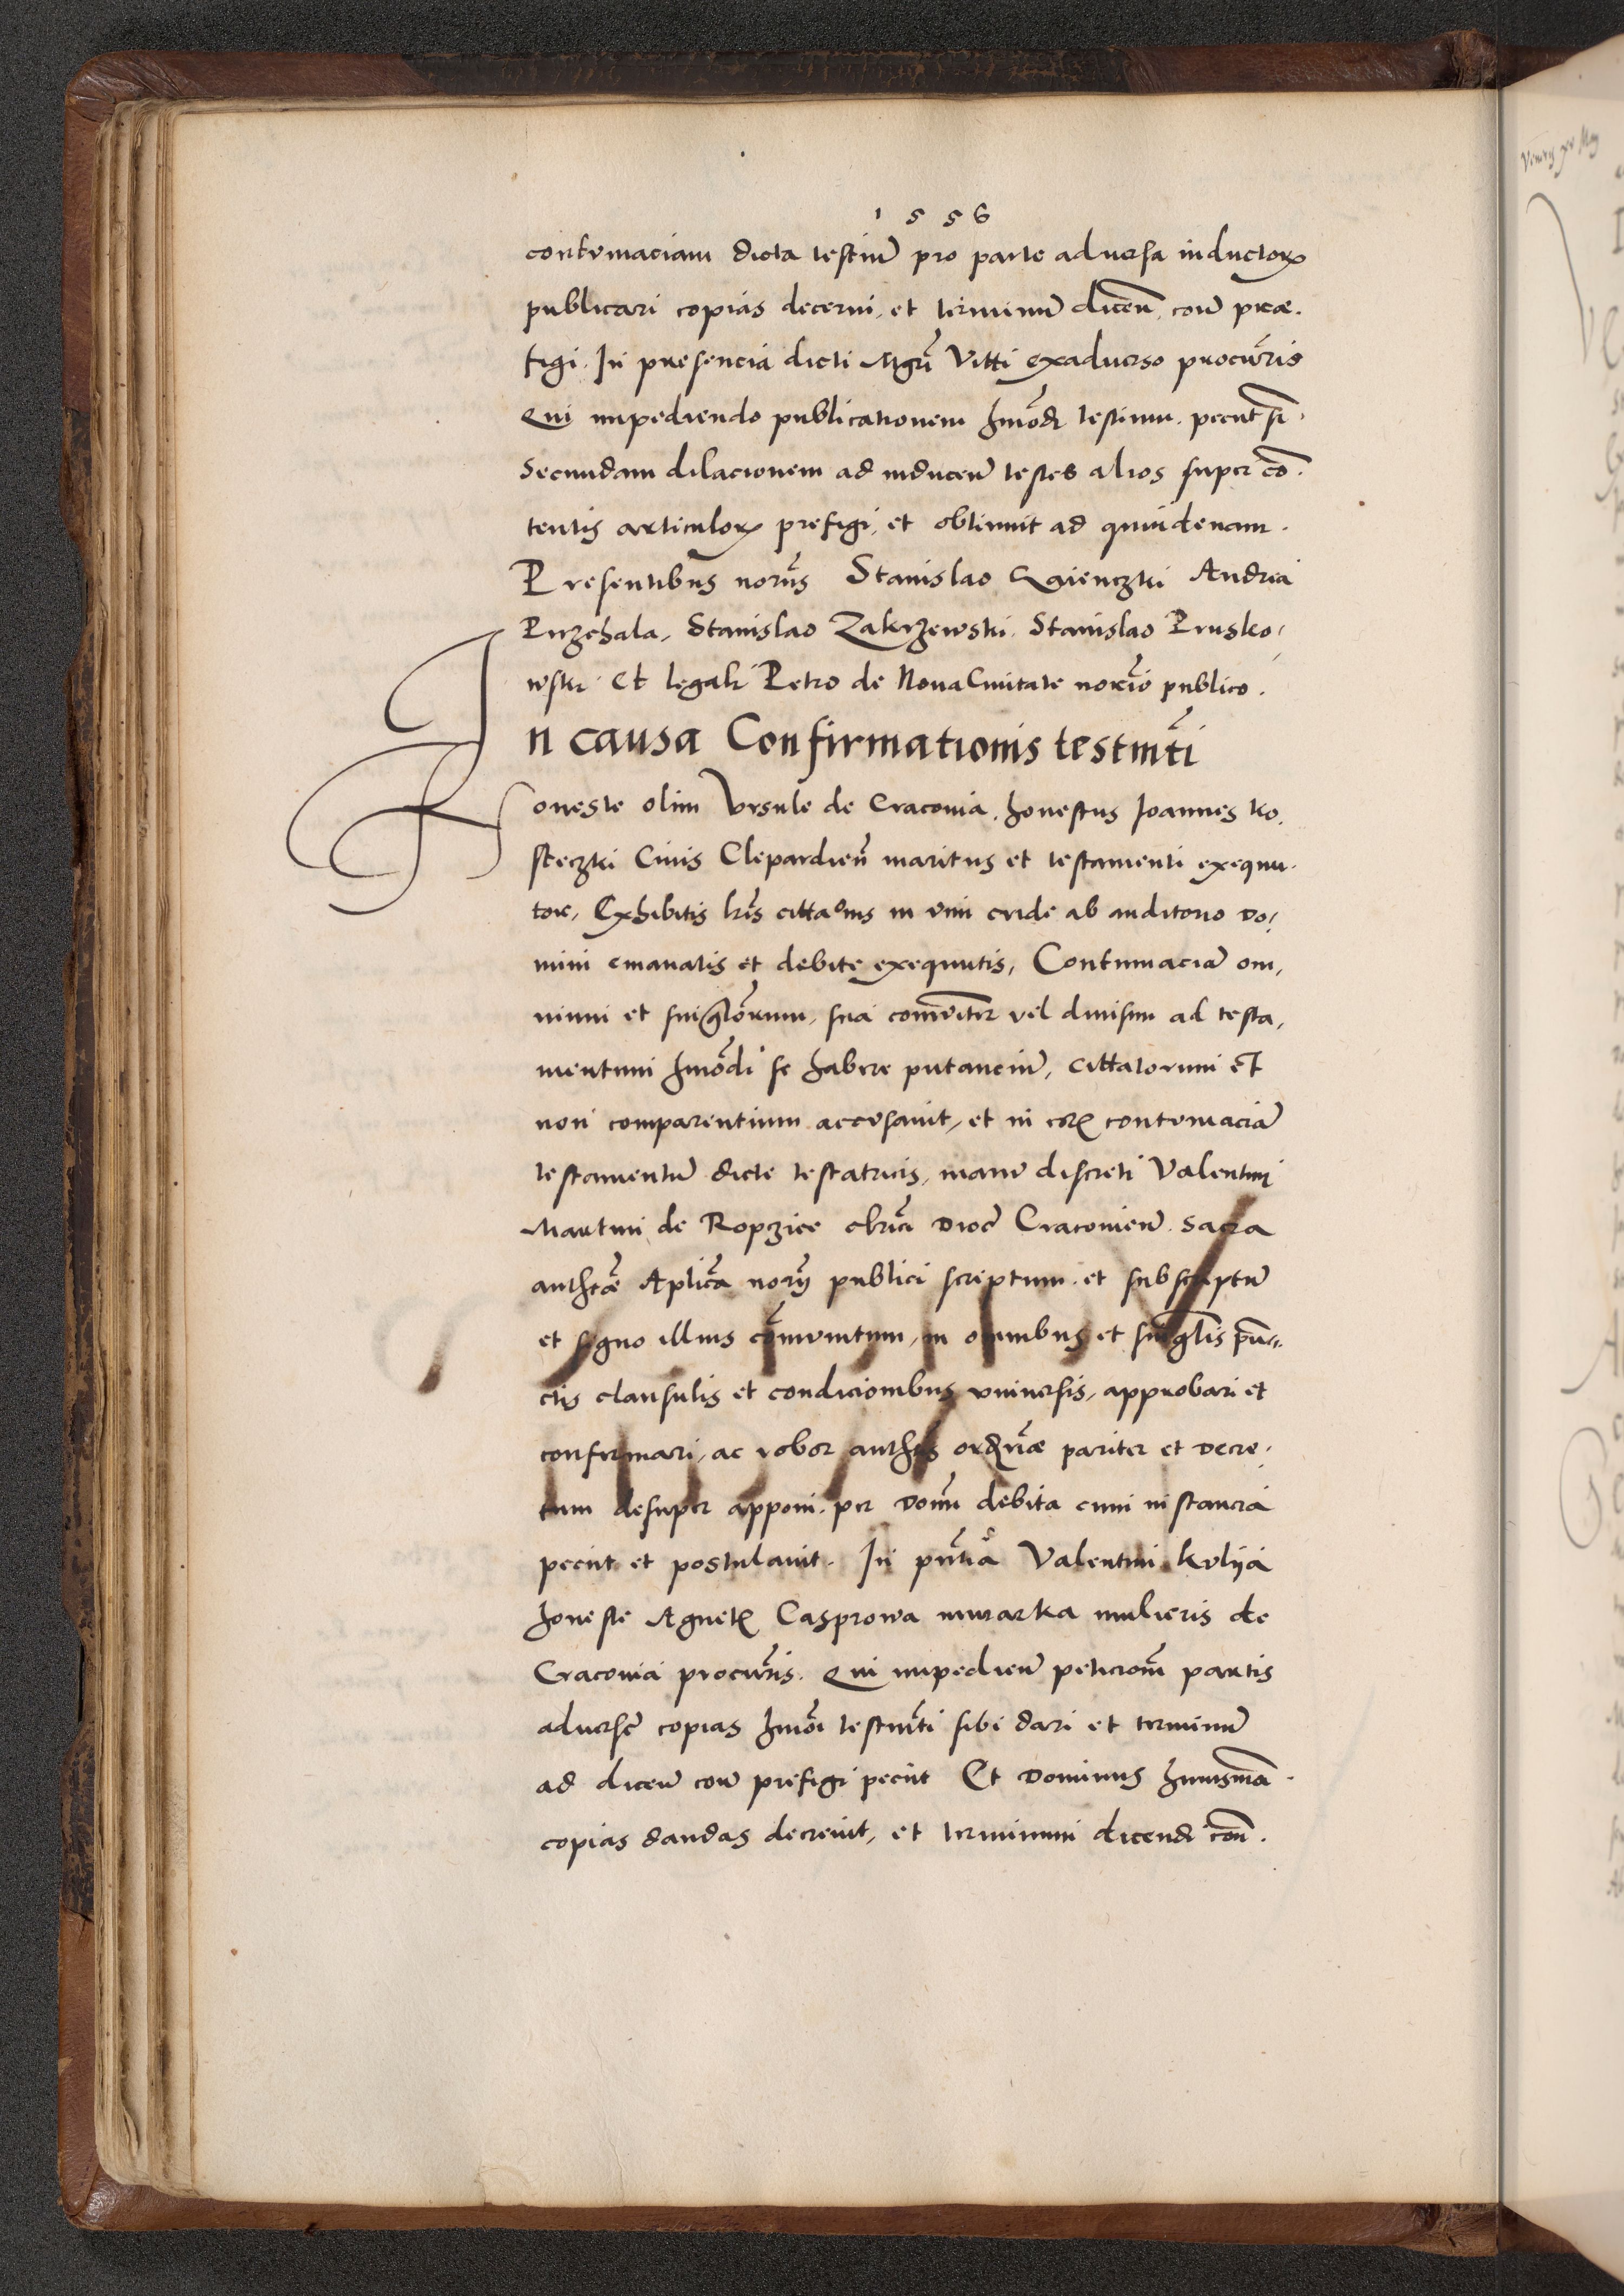 1556
contumaciam dicta testiũ pro parte aduersa inductorꝝ
publicari copias decerni, et terminũ diceñ, coñ præ.
figi. In presencia dicti Mgri Vitti exaduerso procuris
Qui impediendo publicationem hmõdi testium. peciit si.
Secundam dilacionem ad induceñ testes alios super cõ.
tentis articulorꝝ prefigi, et obtinuit ad quindenam.
Presentibus norijs Stanislao Andrea
Przchala, Stanislao Zakrzewski. Stanislao Prusko,
wski. Et legali Petro de Noua Ciuitate norio publico.
In causa Confirmationis testmti
Honeste olim Vrsule de Cracovia, honestus Joannes Ko.
steczki Ciuis Clepardieñ maritus et testamenti exequu.
tor, Exhibitis lris cittaonis in vim cride ab auditorio Do,
mini emanatis et debite exequutis, Contumaciã om,
nium et singlorum, sua comuniter vel diuisim ad testa,
mentum hmõdi se habere putanciũ, cittatorum et
non comparentium accusauit, et in eorꝝ contumaciã
testamentũ dicte testatricis, manu discreti Valentini
Martini de Ropczice clrici Dioc̃ Cracovieñ. sacra
authte Aplica norij publici scriptum. et subscriptũ
et signo illius cõmunitum, in omnibus et singlis pũ.
ctis clausulis et condicionibus vniuersis, approbari et
confirmari, ac robor authtis ordriæ pariter et Decre.
tum desuper apponi. per Domĩ debita cum instancia
peciit et postulauit. In pntia Valentini Kulija
honeste Agnetꝭ Casprowa murarka mulieris de
Cracovia procuris. Qui impedieñ peticiom̃ partis
aduersẽ copias hmõi testmti sibi dari et terminũ
ad diceñ coñ prefigi peciit Et Dominus huiusmõi.
copias dandas decreuit, et terminum dicendi coñ.